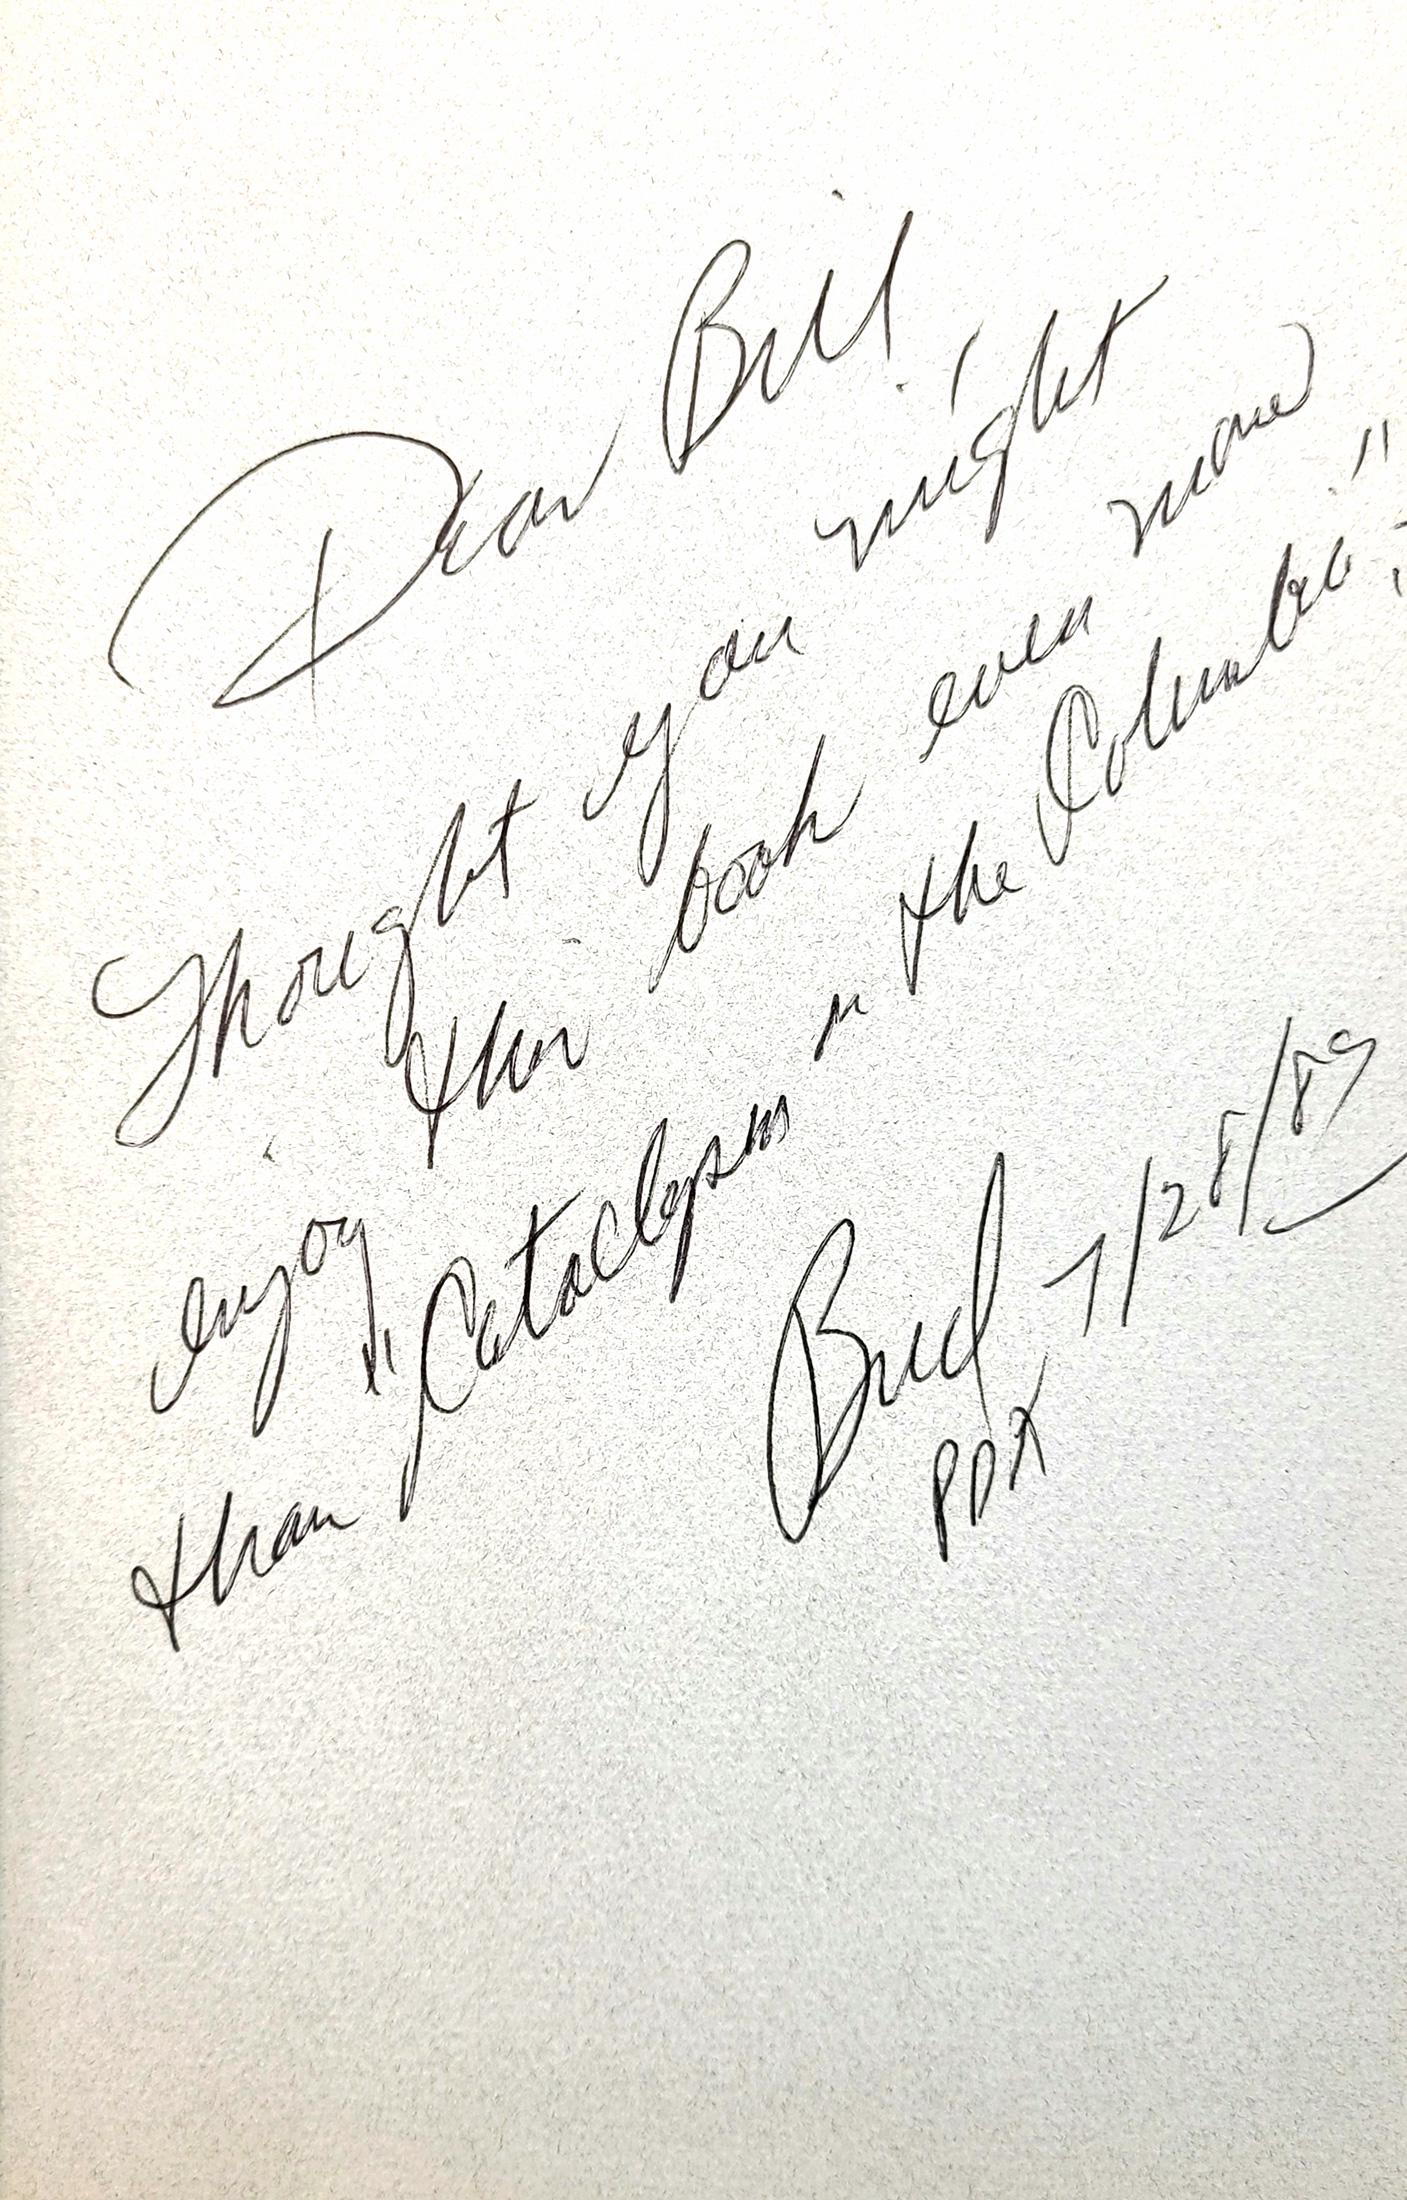 Dear Bill!
Thought you might
enjoy this book even more
than "Cataclysm in the Columbia"!
Bud 7/28/89
PDX